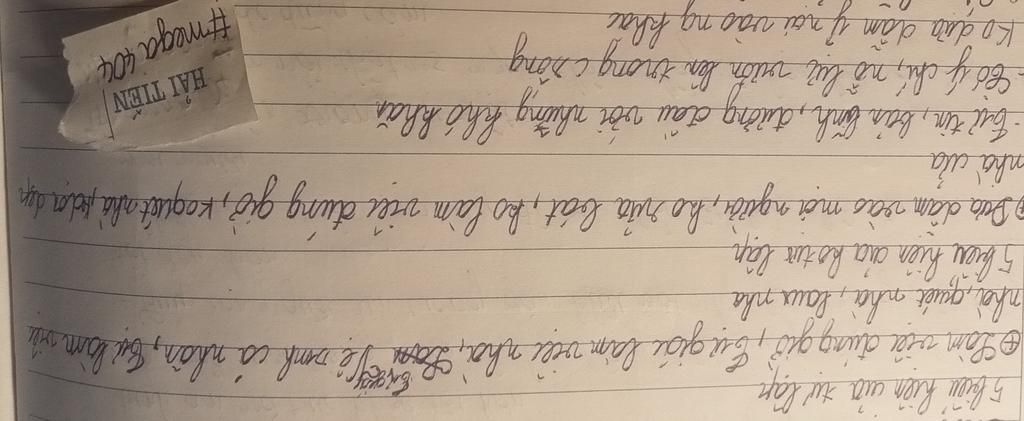 5 biểu hiện của tự lập
⊕ Làm việc đúng giờ, tự giác làm việc nhà, tự giác vệ sinh cá nhân, tự làm việc
nhà, quét nhà, lau nhà
5 biểu hiện của ko tự lập
⊕ Dựa dẫm vào mọi người, ko rửa bát, ko làm việc đúng giờ, ko quét nhà, ko dọn dẹp
nhà cửa
- Tự tin, bản lĩnh, đương đầu với những khó khăn
- Có ý chí, nỗ lực vươn lên trong c sống
Ko dựa dẫm ỷ nại vào ng khác
HẢI TIẾN
#mega 404